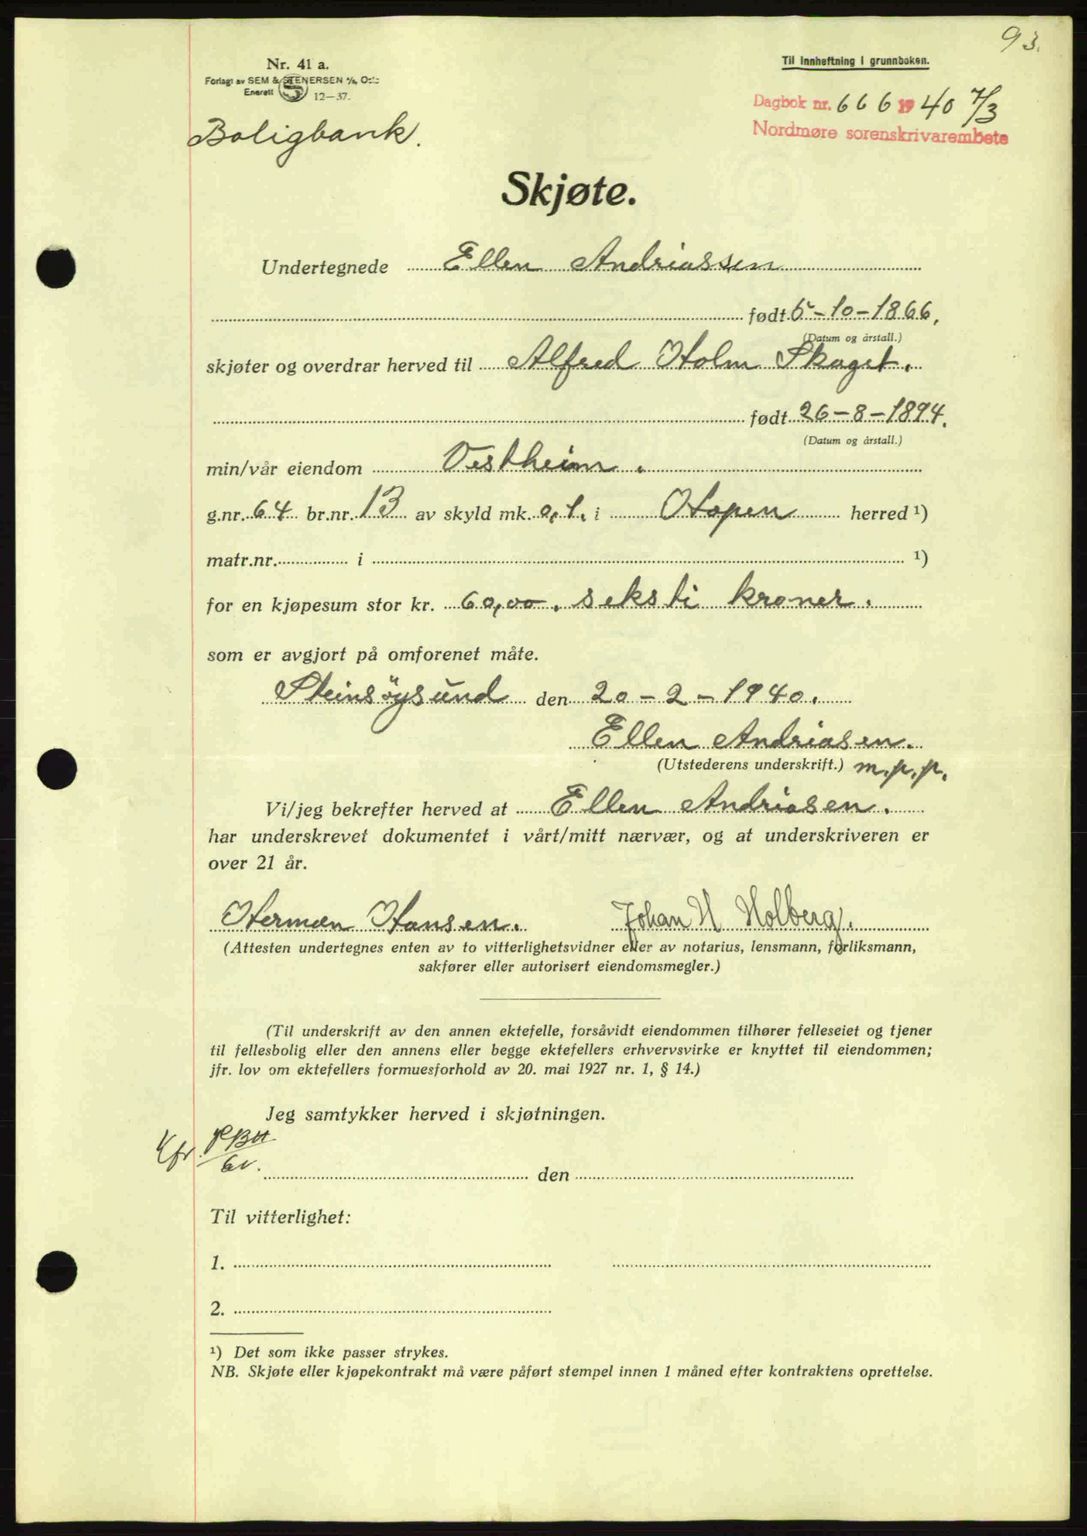 93.
Nr. 41 a.
Forlagt av SEM & STENERSEN A/S, Oslo
Enerett 12—37.
Til innheftning i grunnboken.
Dagbok nr. 666 1940 7/3
Nordmøre sorenskrivarembete
Boligbank.
Skjøte.
Undertegnede Ellen Andriassen
født 5-10-1866.
(Datum og årstall.)
skjøter og overdrar herved til Alfred Holm Skaget.
født 26-8-1894.
(Datum og årstall.)
min/vår eiendom Vestheim.
g.nr. 64 br.nr. 13 av skyld mk. 0,1. i Hopen herred ¹)
matr.nr. i ¹)
for en kjøpesum stor kr. 60,00. seksti kroner.
som er avgjort på omforenet måte.
Steinsøysund den 20-2-1940.
Ellen Andriasen.
(Utstederens underskrift.) m.p.p.
Vi/jeg bekrefter herved at Ellen Andriasen.
har underskrevet dokumentet i vårt/mitt nærvær, og at underskriveren er
over 21 år.
Herman Hansen. Johan H Holberg.
(Attesten undertegnes enten av to vitterlighetsvidner eller av notarius, lensmann, forliksmann,
sakfører eller autorisert eiendomsmegler.)
(Til underskrift av den annen ektefelle, forsåvidt eiendommen tilhører felleseiet og tjener
til fellesbolig eller den annens eller begge ektefellers erhvervsvirke er knyttet til eiendommen;
jfr. lov om ektefellers formuesforhold av 20. mai 1927 nr. 1, § 14.)
Jeg samtykker herved i skjøtningen.
den
Til vitterlighet:
1.
2.
¹) Det som ikke passer strykes.
NB. Skjøte eller kjøpekontrakt må være påført stempel innen 1 måned efter kontraktens oprettelse.